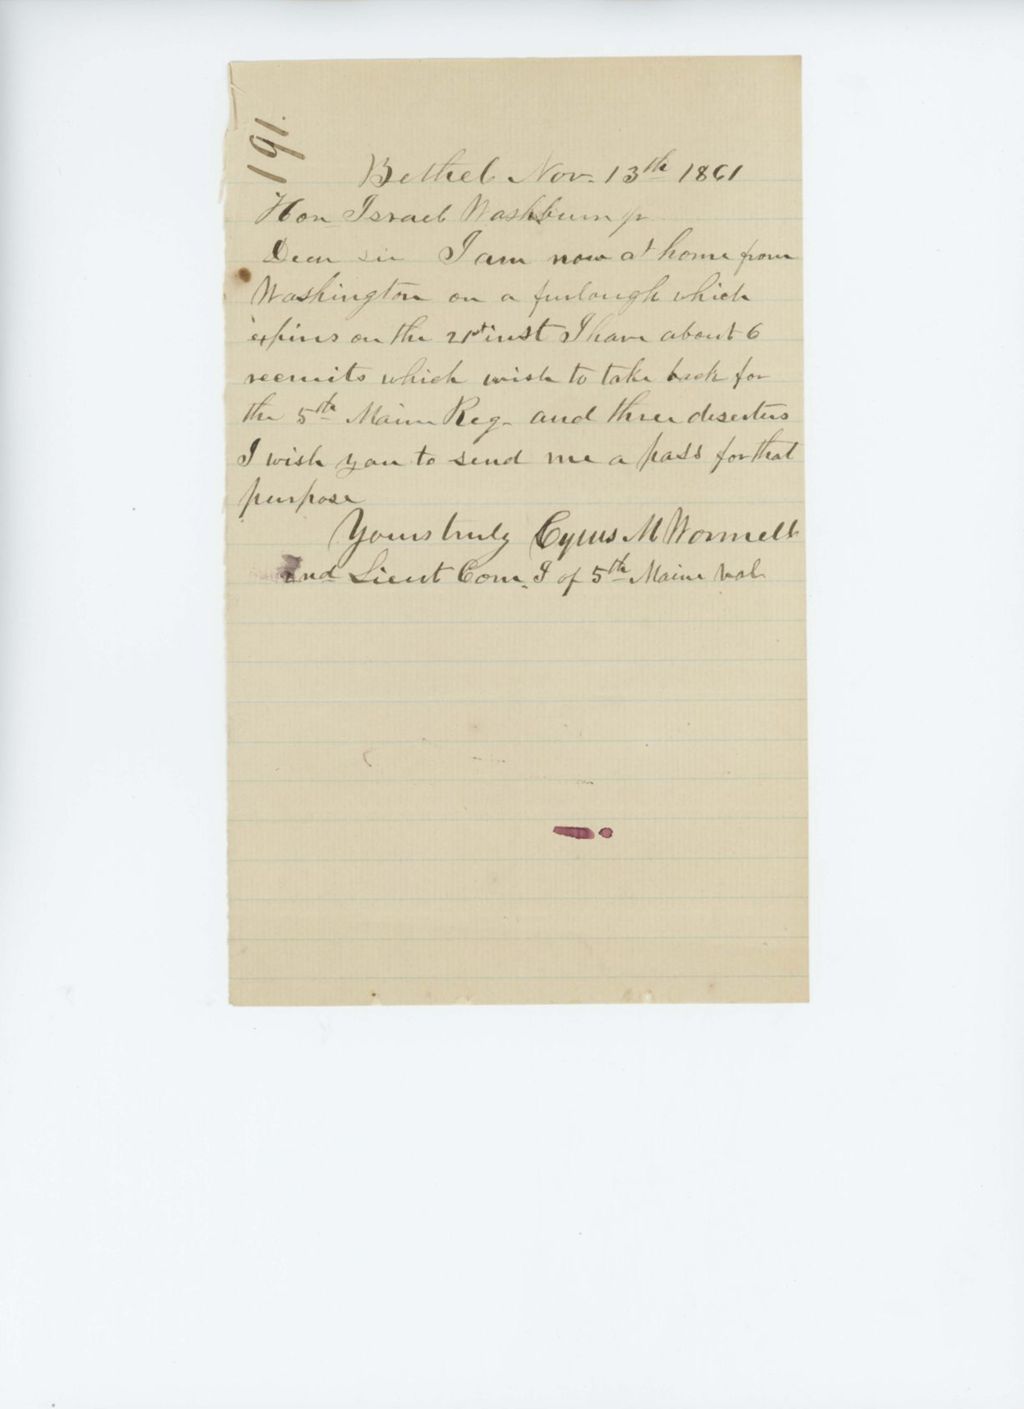 191.
Bethel Nov. 13th 1861
Hon Israel Washburn jr
Dear sir I am now at home from
Washington on a furlough which
expires on the 21st inst I have about 6
recruits which wish to take back for
the 5th Maine Reg- and three deserters
I wish you to send me a pass for that
purpose
Yours truly Cyrus M Wormell
2nd Lieut Com. I of 5th Maine Vol